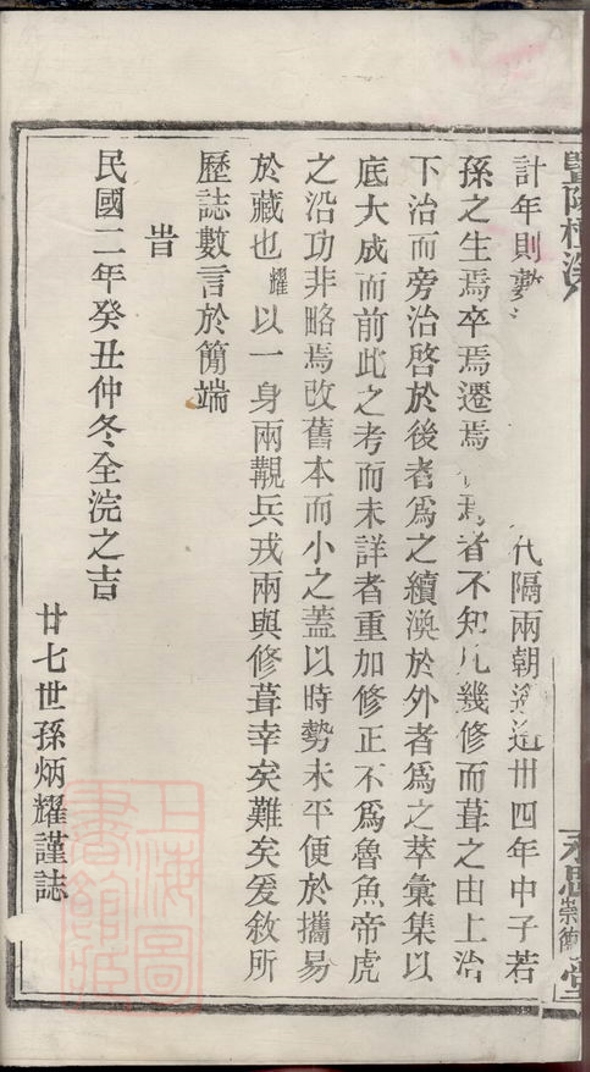 計年則數代隔兩朝 世四年中子若
孫之生焉卒焉遷焉 焉者不知凡幾修而葺之由上治
下治而旁治啓於後者爲之續渙於外者爲之萃彙集以
底大成而前此之考而未詳者重加修正不爲魯魚帝虎
之沿功非略焉改舊本而小之蓋以時勢未平便於攜易
於藏也耀以一身兩覩兵戎兩與修葺幸矣難矣爰敘所
歷誌數言於簡端
旹
民國二年癸丑仲冬全浣之吉
廿七世孫炳耀謹誌
上海圖書館藏